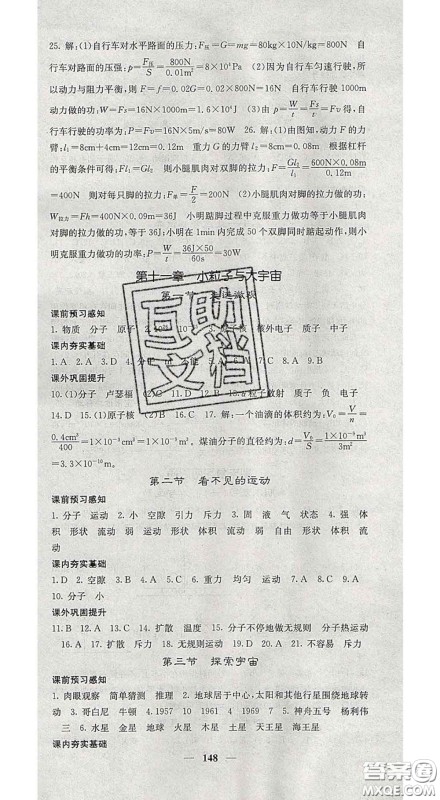 25. 解:(1)自行车对水平路面的压力:F压=G=mg=80kg×10N/kg=800N 自
行车对路面的压强:p=F压/S=800N/0.01m²=8×10⁴Pa (2)因为自行车匀速行驶,所
以动力与阻力平衡,则 F=f=0.02G=0.02×800N=16N 自行车行驶 1000m
动力做的功:W=Fs=16N×1000m=1.6×10⁴J (3)由 p=W/t=Fs/t=Fv 得,自
行车行驶的功率为:P=Fv=16N×5m/s=80W 26. 解:(1)由图知,动力 F 的力
臂:l₁=8cm+4cm=12cm=0.12m 重力 G 的力臂 l₂=8cm=0.08m 根据杠杆
的平衡条件可得:Fl₁=Gl₂ 则小腿肌肉对双脚的拉力:F=Gl₂/l₁=600N×0.08m/0.12m
=400N 则对每只脚的拉力:F单=F/2=200N (2)小腿肌肉对脚的拉力做的功:
W拉力=Fh=400N×0.09m=36J 小明踮脚过程中克服重力做功等于小腿肌肉
对脚的拉力做的功,等于 36J;小明在 1min 内完成 50 个双脚同时踮起动作,则小
明克服重力做功的功率:P=W/t=36J×50/60s=30W
第十一章 小粒子与大宇宙
第一节 走进微观
课前预习感知
1. 物质 分子 原子 核外电子 质子 中子
课内夯实基础
1. A 2. A 3.
课外巩固提升
10. (1)分子 卢瑟福 (2) 粒子散射 质子 负 电子
14. D 15. (1)原子核 解:一个油滴的体积约为:V₀=V/n=
0.4cm³/400=1×10⁻³cm³=1×10⁻⁹m³. 煤油分子的直径约为:d=V₀/S=1×10⁻⁹m³/3m²
=3.3×10⁻¹⁰m.
第二节 看不见的运动
课前预习感知
1. 分子 运动 2. 小 空隙 引力 斥力 3. 固 液 气 状态 4. 强 体
积 形状 流动 弱 运动 形状 体积 流动 弱 自由 形状 体积 流
动
课内夯实基础
1. D 2. 空隙 3. B 4. A 5. C 6. 重力 均匀 运动 7. A 8. C 9. D
10. 分子 小
课外巩固提升
11. B 12. A 13. C 14. 扩散 温度 15. 分子不停地做无规则 分子热运动
16. A 17. 扩散 斥力 18. 无规则运动 19. D 20. A 21. 不容易 斥力
第三节 探索宇宙
课前预习感知
1. 肉眼观察 简单猜测 推理 2. 地球居于中心,太阳和其他天体围绕地球转动
3. 哥白尼 牛顿 4. 1957 1961 4 1969 5. 神舟五号 杨利伟
三 6. 水星 金星 地球 火星 木星 土星 天王星 海王星
课内夯实基础
148
互助
文档
答案圈
MXQE.COM